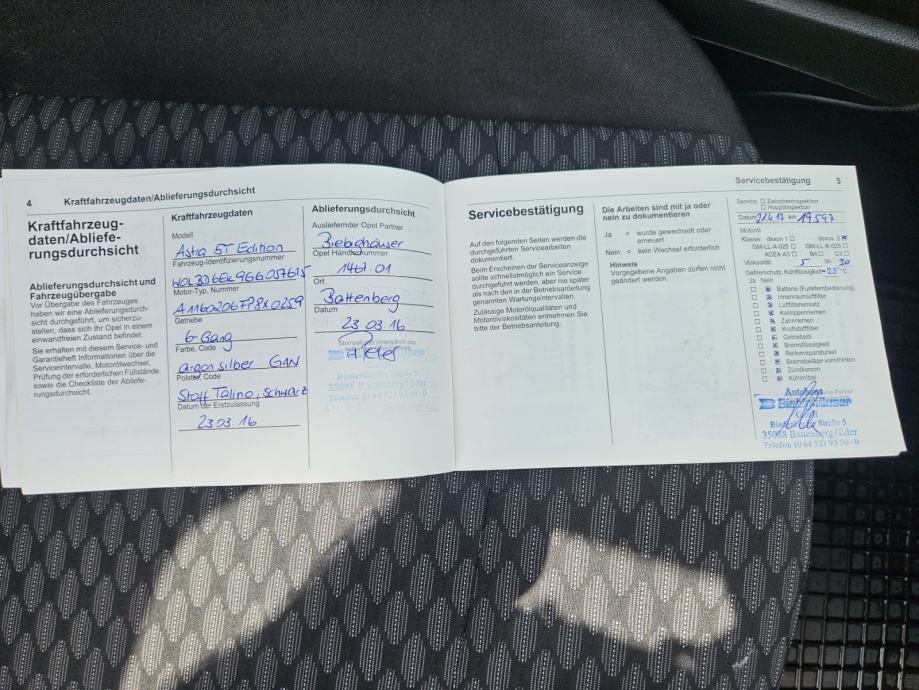 4 Kraftfahrzeugdaten/Ablieferungsdurchsicht
Kraftfahrzeug-
daten/Abliefe-
rungsdurchsicht
Ablieferungsdurchsicht und
Fahrzeugübergabe
Vor Übergabe des Fahrzeuges
haben wir eine Ablieferungsdurch-
sicht durchgeführt, um sicherzu-
stellen, dass sich Ihr Opel in einem
einwandfreien Zustand befindet.
Sie erhalten mit diesem Service- und
Garantieheft Informationen über die
Serviceintervalle, Motorölwechsel,
Prüfung der erforderlichen Füllstände
sowie die Checkliste der Abliefe-
rungsdurchsicht.
Kraftfahrzeugdaten
Modell
Astra 5T Edition
Fahrzeug-Identifizierungsnummer
Motor-Typ, Nummer
Getriebe
6-Gang
Farbe, Code
argon silber GAN
Polster, Code
Stoff Talino, schwarz
Datum der Erstzulassung
23 03. 16
Ablieferungsdurchsicht
Ausliefernder Opel Partner
Biebighäuser
Opel Händlernummer
1461.01
Ort
Battenberg
Datum
23 03 16
35088 Battenberg/Eder
Telefon (0 64 52) 93 50-0
Servicebestätigung 5
Servicebestätigung
Auf den folgenden Seiten werden die
durchgeführten Servicearbeiten
dokumentiert.
Beim Erscheinen der Serviceanzeige
sollte schnellstmöglich ein Service
durchgeführt werden, aber nie später
als nach den in der Betriebsanleitung
genannten Wartungsintervallen.
Zulässige Motorölqualitäten und
Motorölviskositäten entnehmen Sie
bitte der Betriebsanleitung.
Die Arbeiten sind mit ja oder
nein zu dokumentieren
Ja = wurde gewechselt oder
erneuert
Nein = kein Wechsel erforderlich
Hinweis
Vorgegebene Angaben dürfen nicht
geändert werden.
Service: Zwischeninspektion
Hauptinspektion
Datum km 19.597
Motoröl
Klasse: dexos 1 dexos 2
GM-LL-A-025 GM-LL-B-025
ACEA A3 B4 C3
Viskosität: 5 W- 30
Gefrierschutz, Kühlflüssigkeit -25 °C
Ja Nein
Batterie (Funkfernbedienung)
Innenraumluftfilter
Luftfiltereinsatz
Keilrippenriemen
Zahnriemen
Kraftstofffilter
Getriebeöl
Bremsflüssigkeit
Reifenreparaturset
Bremsbeläge vorn/hinten
Zündkerzen
Kühlmittel
Autohaus
Biebighäuser
Straße 5
35088 Battenberg/Eder
Telefon (0 64 52) 93 50-0